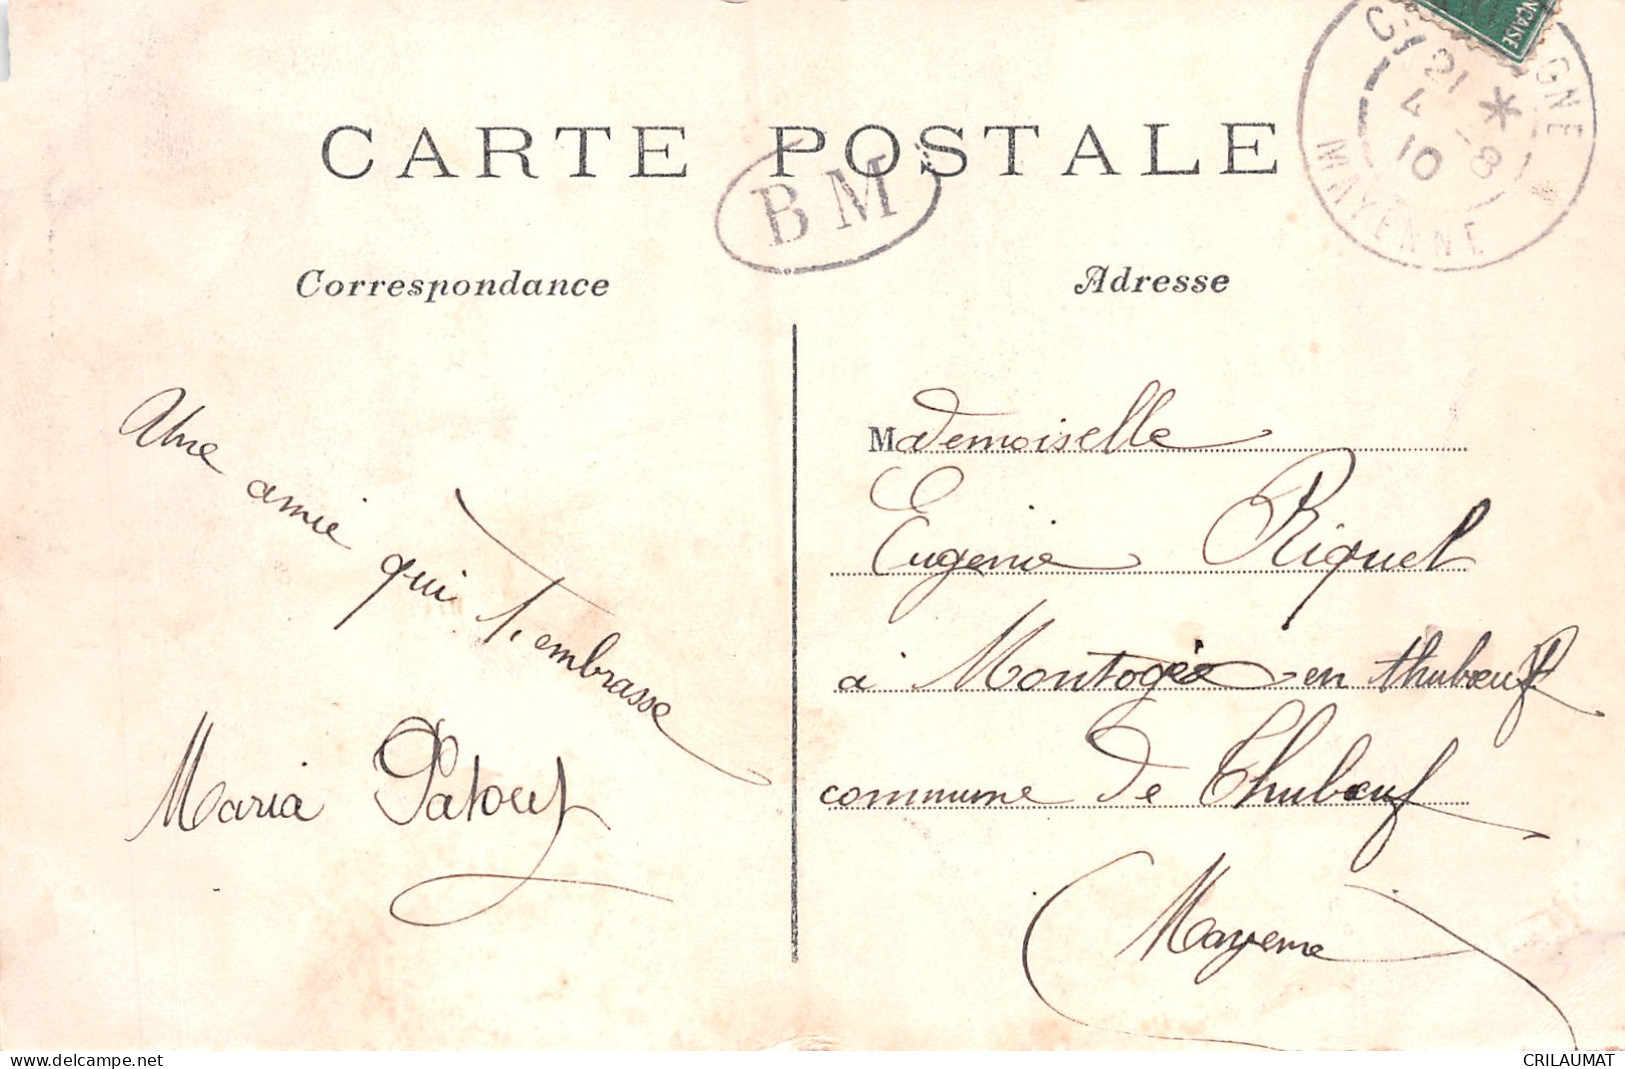 CARTE POSTALE
BM
GNE
21
4
10
MAYENNE
NÇAISE
Correspondance
Adresse
Une
amie
qui t'embrasse
Maria Patoeuf
Mademoiselle
Eugénie Riquet
à en thuboeuf
commune de Thuboeuf
Mayenne
delcampe.net
CRILAUMAT